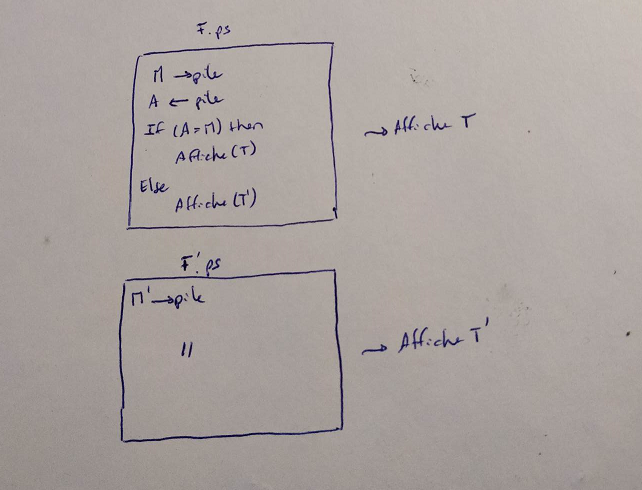 F.ps
M → pile
A ← pile
If (A = M) then
Affiche (T)
Else
Affiche (T')
→ Affiche T
F'.ps
M' → pile
//
→ Affiche T'